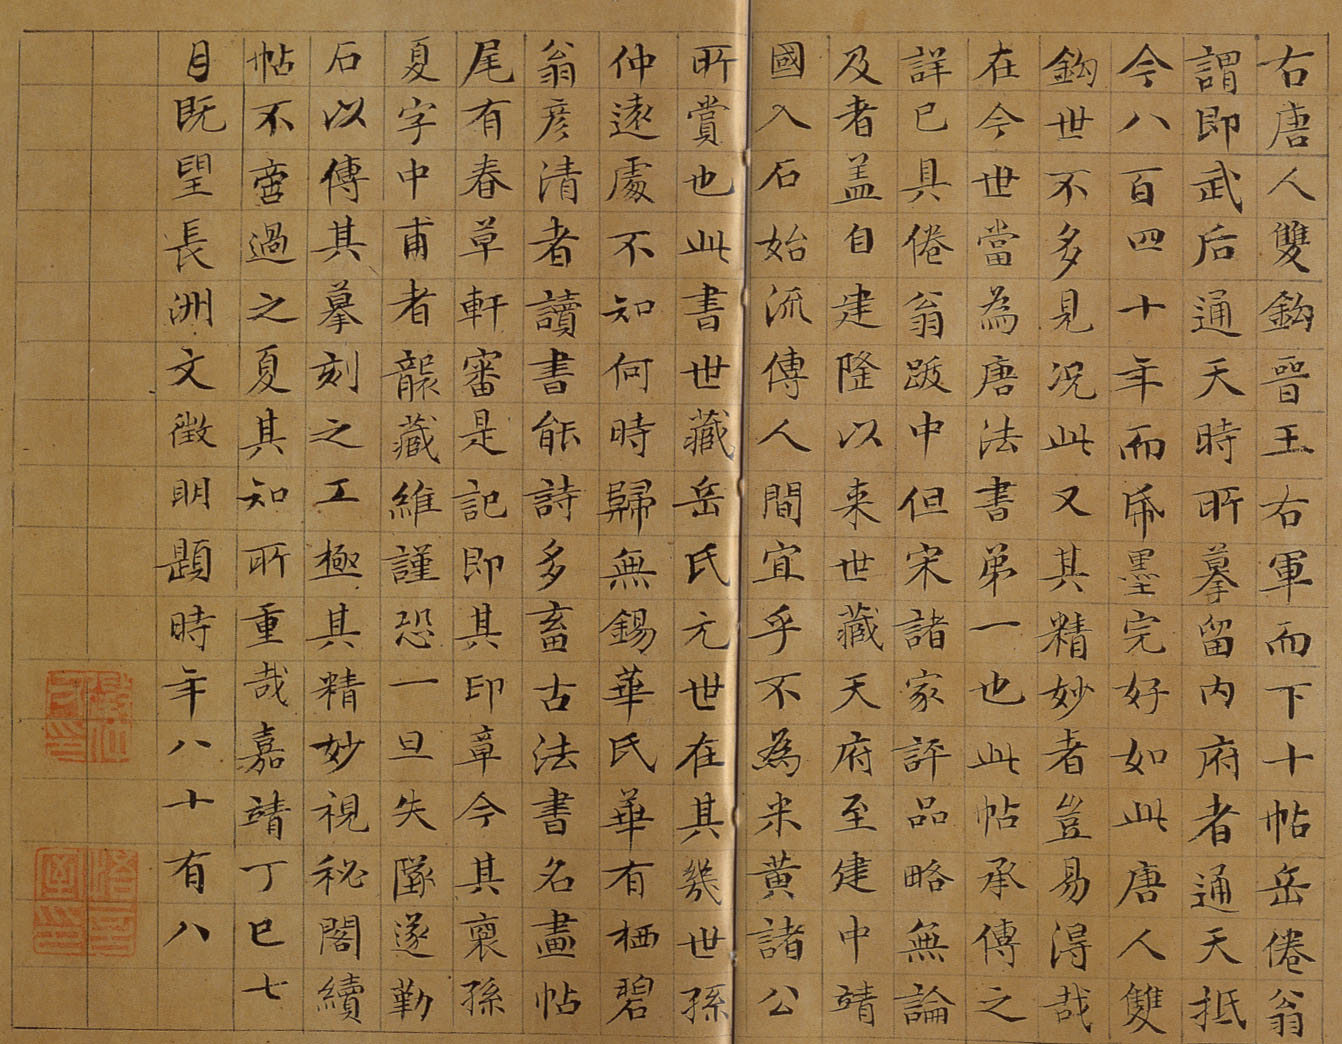 右唐人雙鈎晉王右軍而下十帖岳倦翁
謂即武后通天時所摹留内府者通天抵
今八百四十年而帋墨完好如此唐人雙
鈎世不多見况此又其精妙者豈易得哉
在今世當為唐法書第一也此帖承傳之
詳已具倦翁跋中但宋諸家評品略無論
及者盖自建隆以来世藏天府至建中靖
國入石始流傳人間宜乎不為米黄諸公
所賞也此書世藏岳氏元世在其幾世孫
仲遠處不知何時歸無錫華氏華有栖碧
翁彦清者讀書能詩多畜古法書名畫帖
尾有春草軒審是記即其印章今其裔孫
夏字中甫者襲藏維謹恐一旦失墜遂勒
石以傳其摹刻之工極其精妙視秘閣續
帖不啻過之夏其知所重哉嘉靖丁巳七
月既望長洲文徵明題時年八十有八